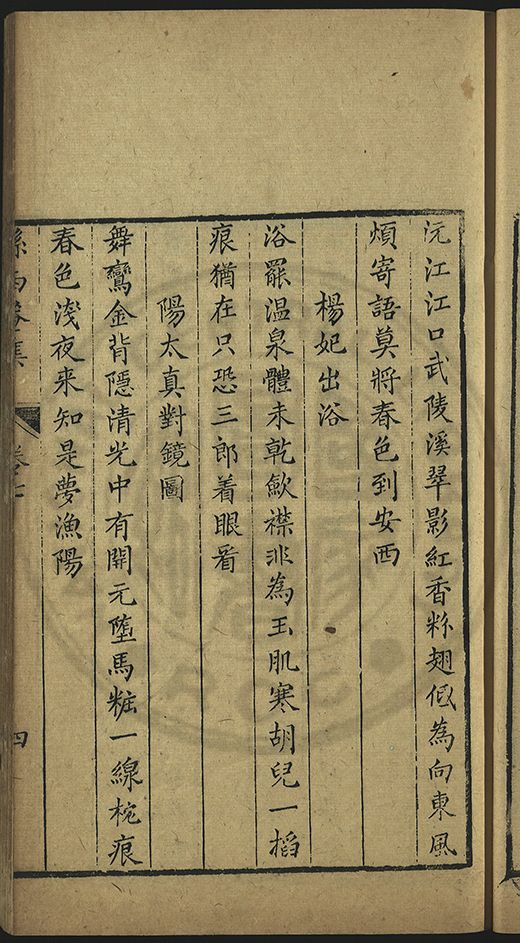 沅江江口武陵溪翠影紅香粉翅低為向東風
煩寄語莫將春色到安西
楊妃出浴
浴罷温泉體未乾歛襟非為玉肌寒胡兒一搯
痕猶在只恐三郎着眼看
陽太真對鏡圖
舞鸞金背隱清光中有開元墮馬粧一線枕痕
春色淺夜来知是夢漁陽
卷七
四